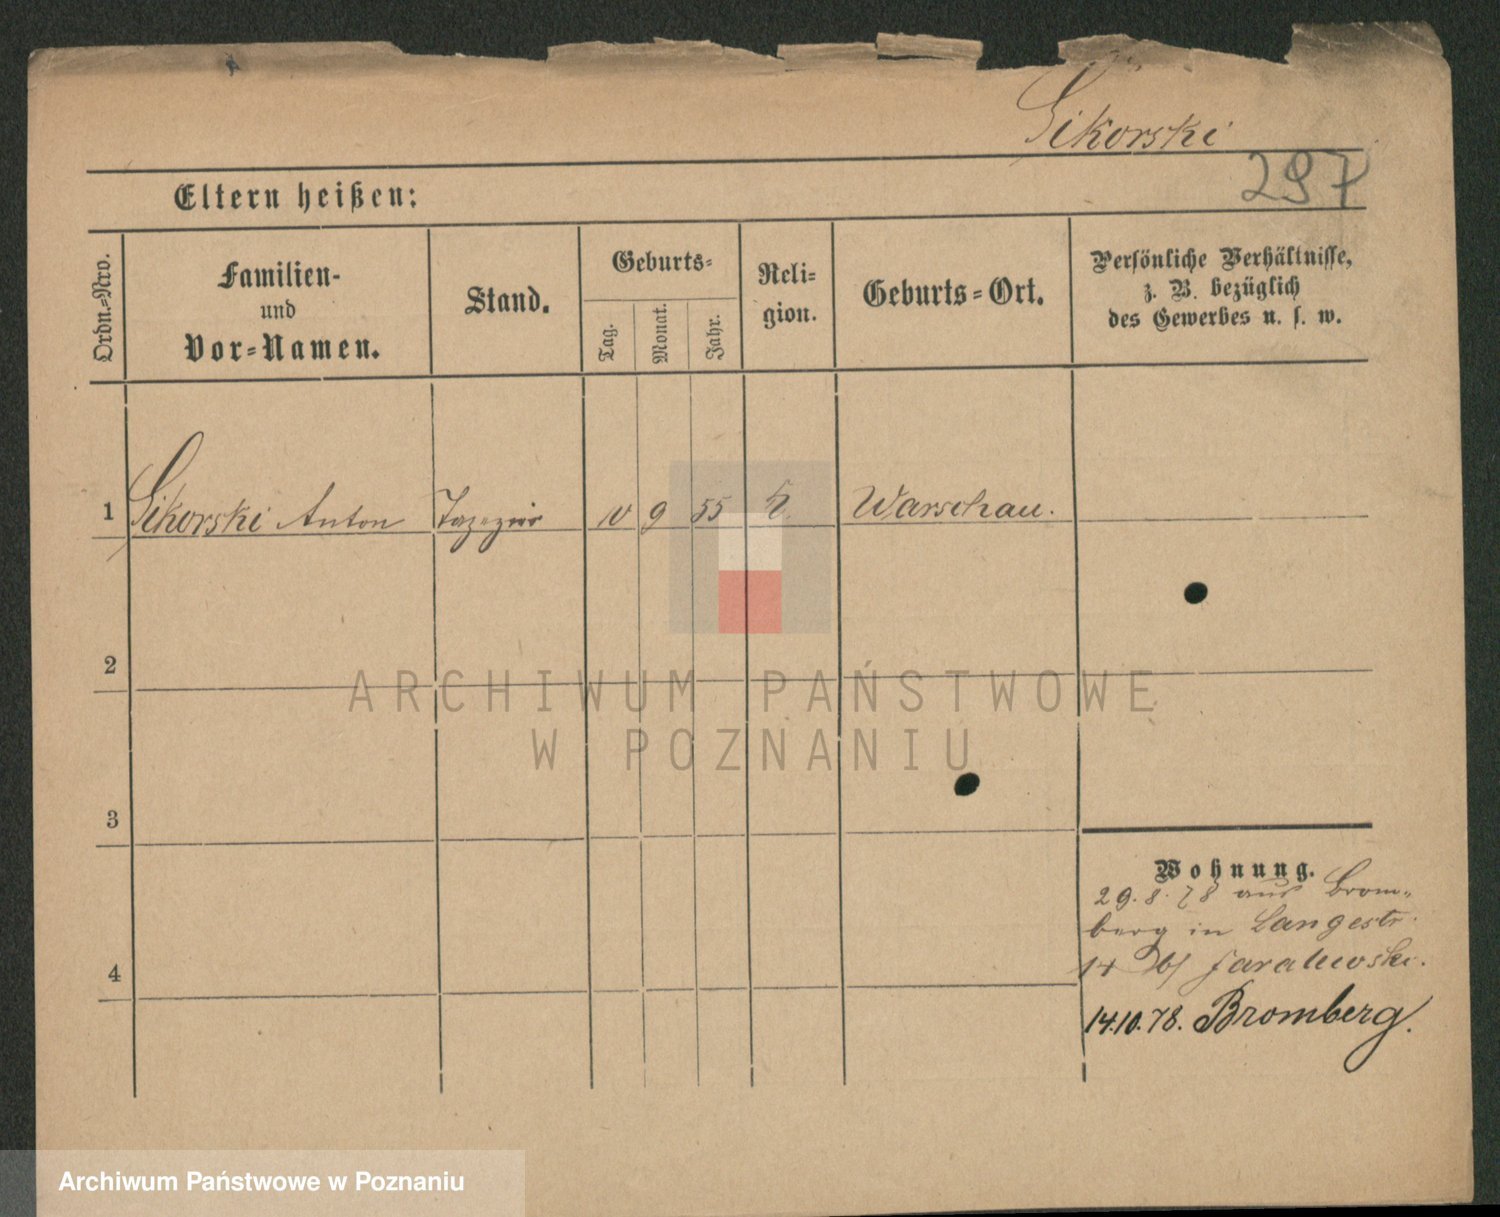 Sikorski
297
Eltern heißen:
Ordn.=Nro.
Familien-
und
Vor=Namen.
Stand.
Geburts=
Tag.
Monat.
Jahr.
Reli=
gion.
Geburts=Ort.
Persönliche Verhältnisse,
z. B. bezüglich
des Gewerbes u. s. w.
1 Sikorski Anton 9 55 Warschau.
2
ARCHIWUM PAŃSTWOWE
W POZNANIU
3
Wohnung.
29.8.78 aus Brom=
berg in Langestr.
14 b/
4
14.10.78. Bromberg.
Archiwum Państwowe w Poznaniu